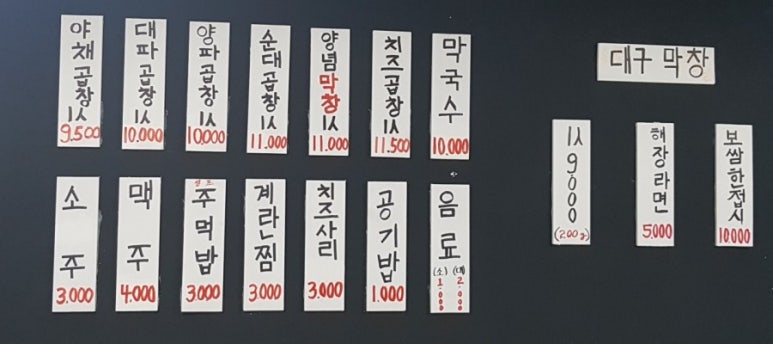 야채곱창 1人 9.500
대파곱창 1人 10.000
양파곱창 1人 10.000
순대곱창 1人 11.000
양념막창 1人 11.000
치즈곱창 1人 11.500
막국수 10.000
소주 3.000
맥주 4.000
셀프 주먹밥 3.000
계란찜 3.000
치즈사리 3.000
공기밥 1.000
음료 (소) 1.000 (대) 2.000
대구 막창
1人 9000 (200g)
해장라면 5.000
보쌈한접시 10.000